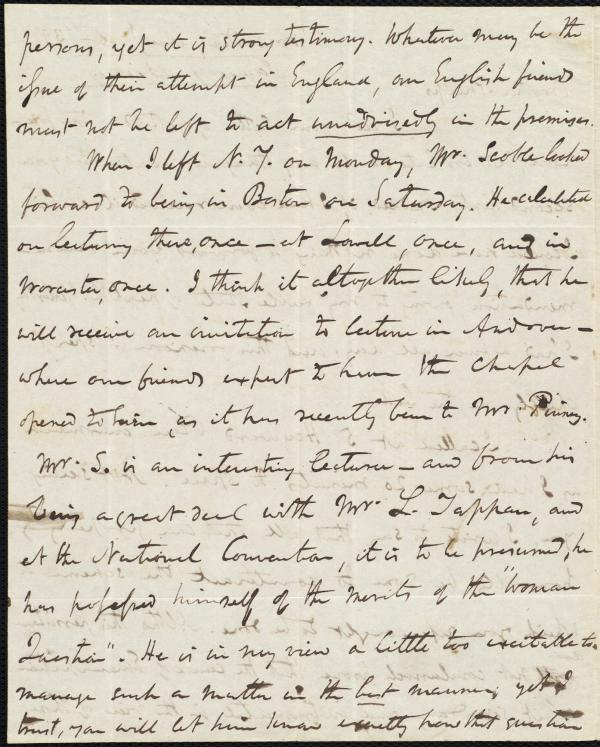 persons, yet it is strong testimony. Whatever may be the
issue of their attempt in England, our English friends
must not be left to act unadvisedly in the premises.
When I left N. Y. on Monday, Mr. Scoble looked
forward to being in Boston on Saturday. He calculated
on lecturing there, once – at Lowell, once, and in
Worcester, once. I think it altogether likely, that he
will receive an invitation to lecture in Andover –
where our friends expect to have the Chapel
opened to him, as it has recently been to Mr.
Mr. S. is an interesting lecturer – and from his
being a great deal with Mr. L. Tappan, and
at the National Convention, it is to be presumed, he
has possessed himself of the merits of the "Woman
Question". He is in my view a little too excitable to
manage such a matter in the best manner; yet I
trust, you will let him know exactly how that question